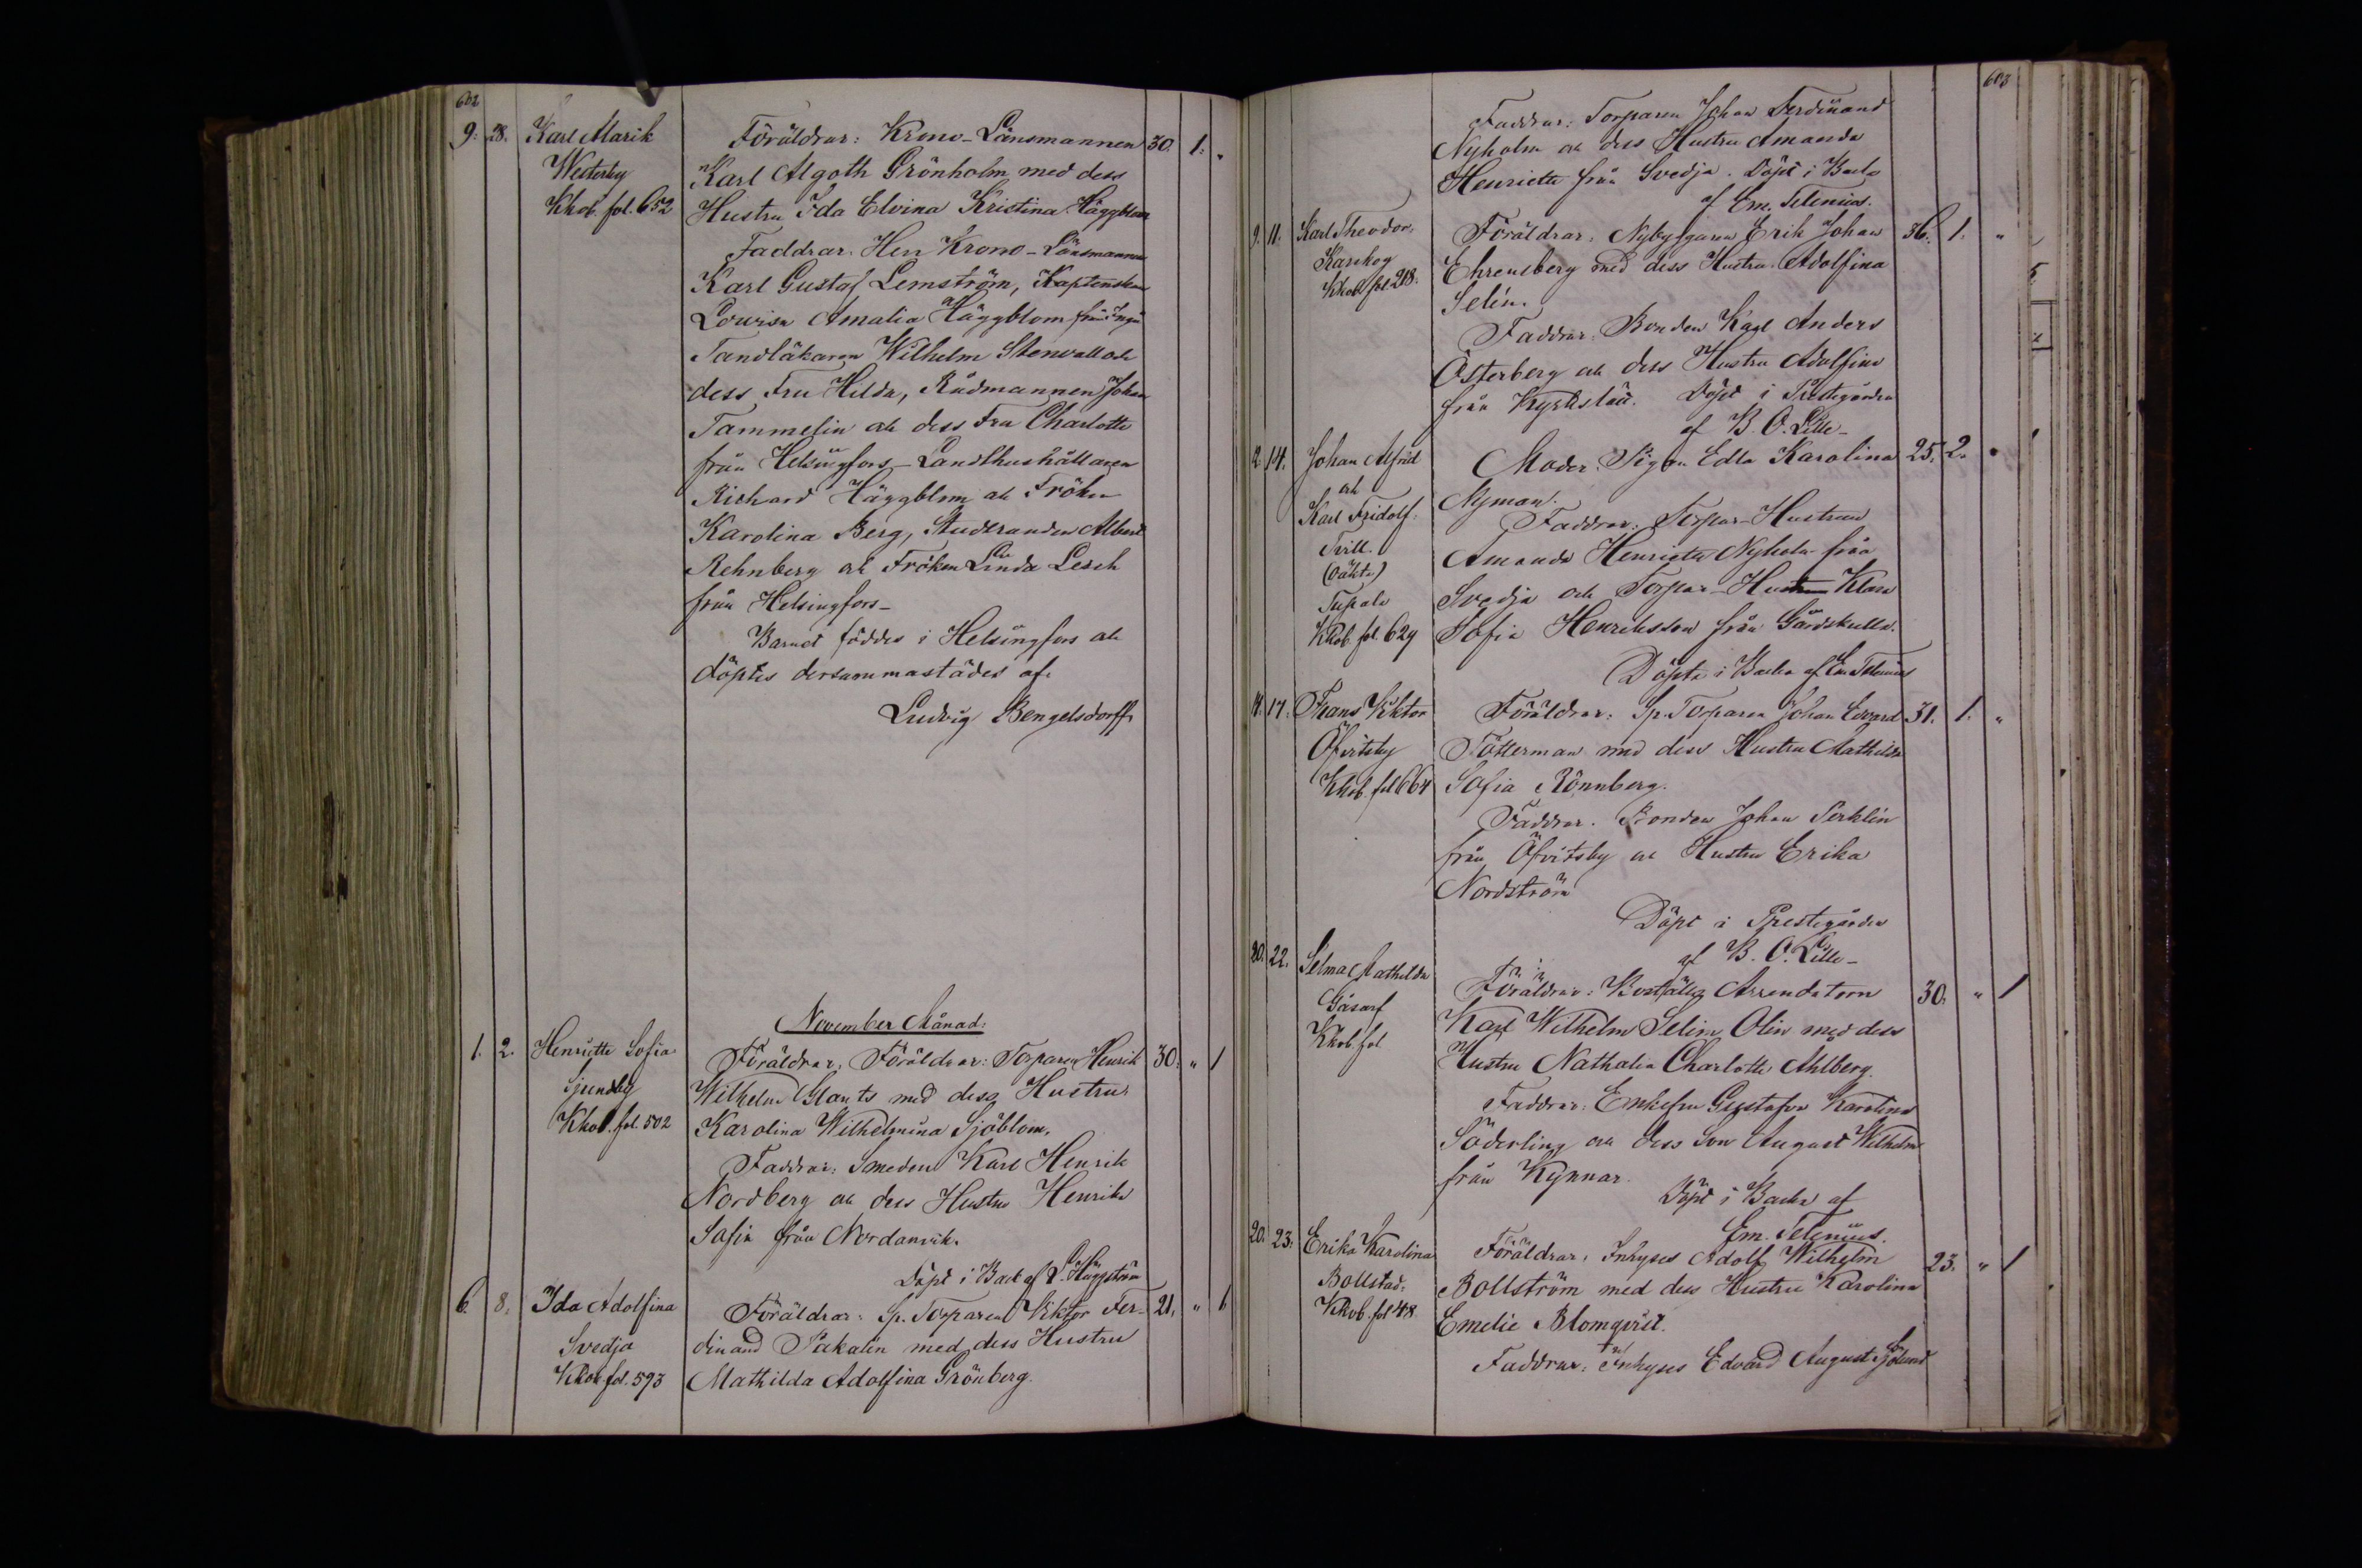 602
9. 28. Karl Alarik Föräldrar: Krono-Länsmannen 30. 1. "
Westerby Karl Algoth Grönholm med dess
Kkob. fol. 652 Hustru Ida Elvina Kristina Häggblom
Faddrar. Herr Krono-Länsmannen
Karl Gustaf Lemström, Kaptenskan
Lowisa Amalia Häggblom från Ingå
Tandläkaren Wilhelm Stenvall och
dess Fru Hilda, Rådmannen Johan
Tammelin och dess Fru Charlotte
från Helsingfors - Landthushållaren
Richard Häggblom och Fröken
Karolina Berg, Studeranden Albert
Rehnberg och Fröken Linda Lesch
från Helsingfors-
Barnet föddes i Helsingfors och
döptes dersammastädes af
Ludvig Bengelsdorff
November Månad:
1. 2. Henriette Sofia Föräldrar, Föräldrar: Torparen Henrik 30. " 1
Sjundby Wilhelm Glants med dess Hustru
Kkob. fol. 502 Karolina Wilhelmina Sjöblom.
Faddrar: Smeden Karl Henrik
Nordberg och dess Hustru Henrika
Sofia från Nordanvik.
Döpt i Back af Häggström
6. 8. Ida Adolfina Föräldrar: Sp. Torparen Viktor Fer- 21. " 1
Svedja dinand Sakalén med dess Hustru
Kkob fol. 593 Mathilda Adolfina Grönberg.
603
Faddrar: Torparen Johan Ferdinand
Nyholm och dess Hustru Amanda
Henrietta från Svedja. Döpt i Backa
af Em. Telenius.
9. 11. Karl Theodor, Föräldrar: Nybyggaren Erik Johan 36. 1. "
Karskog Ehrensberg med dess Hustru Adolfina
Kkob fol. 218. Selin.
Faddrar: Bonden Karl Anders
Österberg och dess Hustru Adolfina
från Kyrkslätt. Döpt i Prestgården
af B. O. Lille-
2. 14. Johan Alfrid Moder: Pigan Edla Karolina 25. 2. "
och Nyman.
Karl Fridolf. Faddrar: Torpar-Hustrun
Tvill. Amanda Henrietta Nyholm från
(Oäkta) Svedja och Torpar-Hustrun Klara
Tupala Sofia Henriksson från Gårdskulla.
Kkob. fol. 629
Döpte i Backa af Em Telenius
11. 17. Frans Viktor Föräldrar: Sp. Torparen Johan Edvard 31. 1. "
Öfvitsby Tötterman med dess Hustru Mathilda
Kkob. fol 664 Sofia Rönnberg.
Faddrar. Bonden Johan Serklin
från Öfvitsby och Hustru Erika
Nordström
Döpt i Prestegården
af B. O. Lille-
20. 22. Selma Mathilda Föräldrar: Boställs Arrendatorn 30. " 1
Gåsarf Karl Wilhelm Selim Olin med dess
Kkob. fol. Hustru Nathalia Charlotta Ahlberg.
Faddrar: Enkefru Gustafva Karolina
Söderling och dess Son August Wilhelm
från Kynnar.
Döpt i Backa af
Em. Telenius.
20. 23. Erika Karolina Föräldrar, Inhyses Adolf Wilhelm 23. " 1
Bollstad. Bollström med dess Hustru Karolina
Kkob. fol 48. Emelie Blomqvist.
Faddrar: Inhyses Edvard August Sjölund